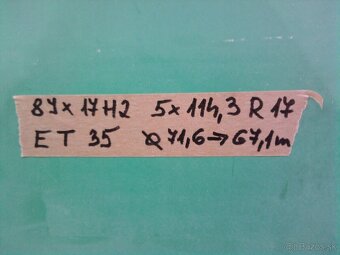 8J x 17 H2 5 x 114,3 R 17
ET 35 Ø 71,6 → 67,1 m